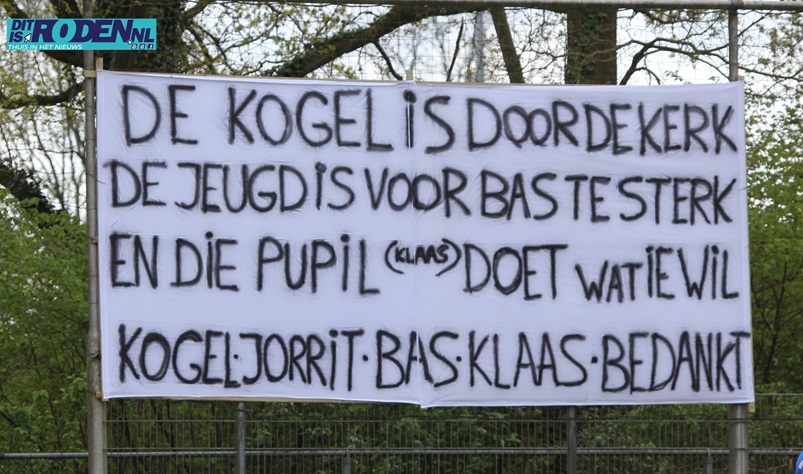 DIT
IS RODEN.NL
THUIS IN HET NIEUWS
DE KOGEL iS DOOR DE KERK
DE JEUGD iS VOOR BAS TE STERK
EN DiE PUPiL (KLAAS) DOET WAT iE WiL
KOGEL·JORRiT·BAS·KLAAS·BEDANKT